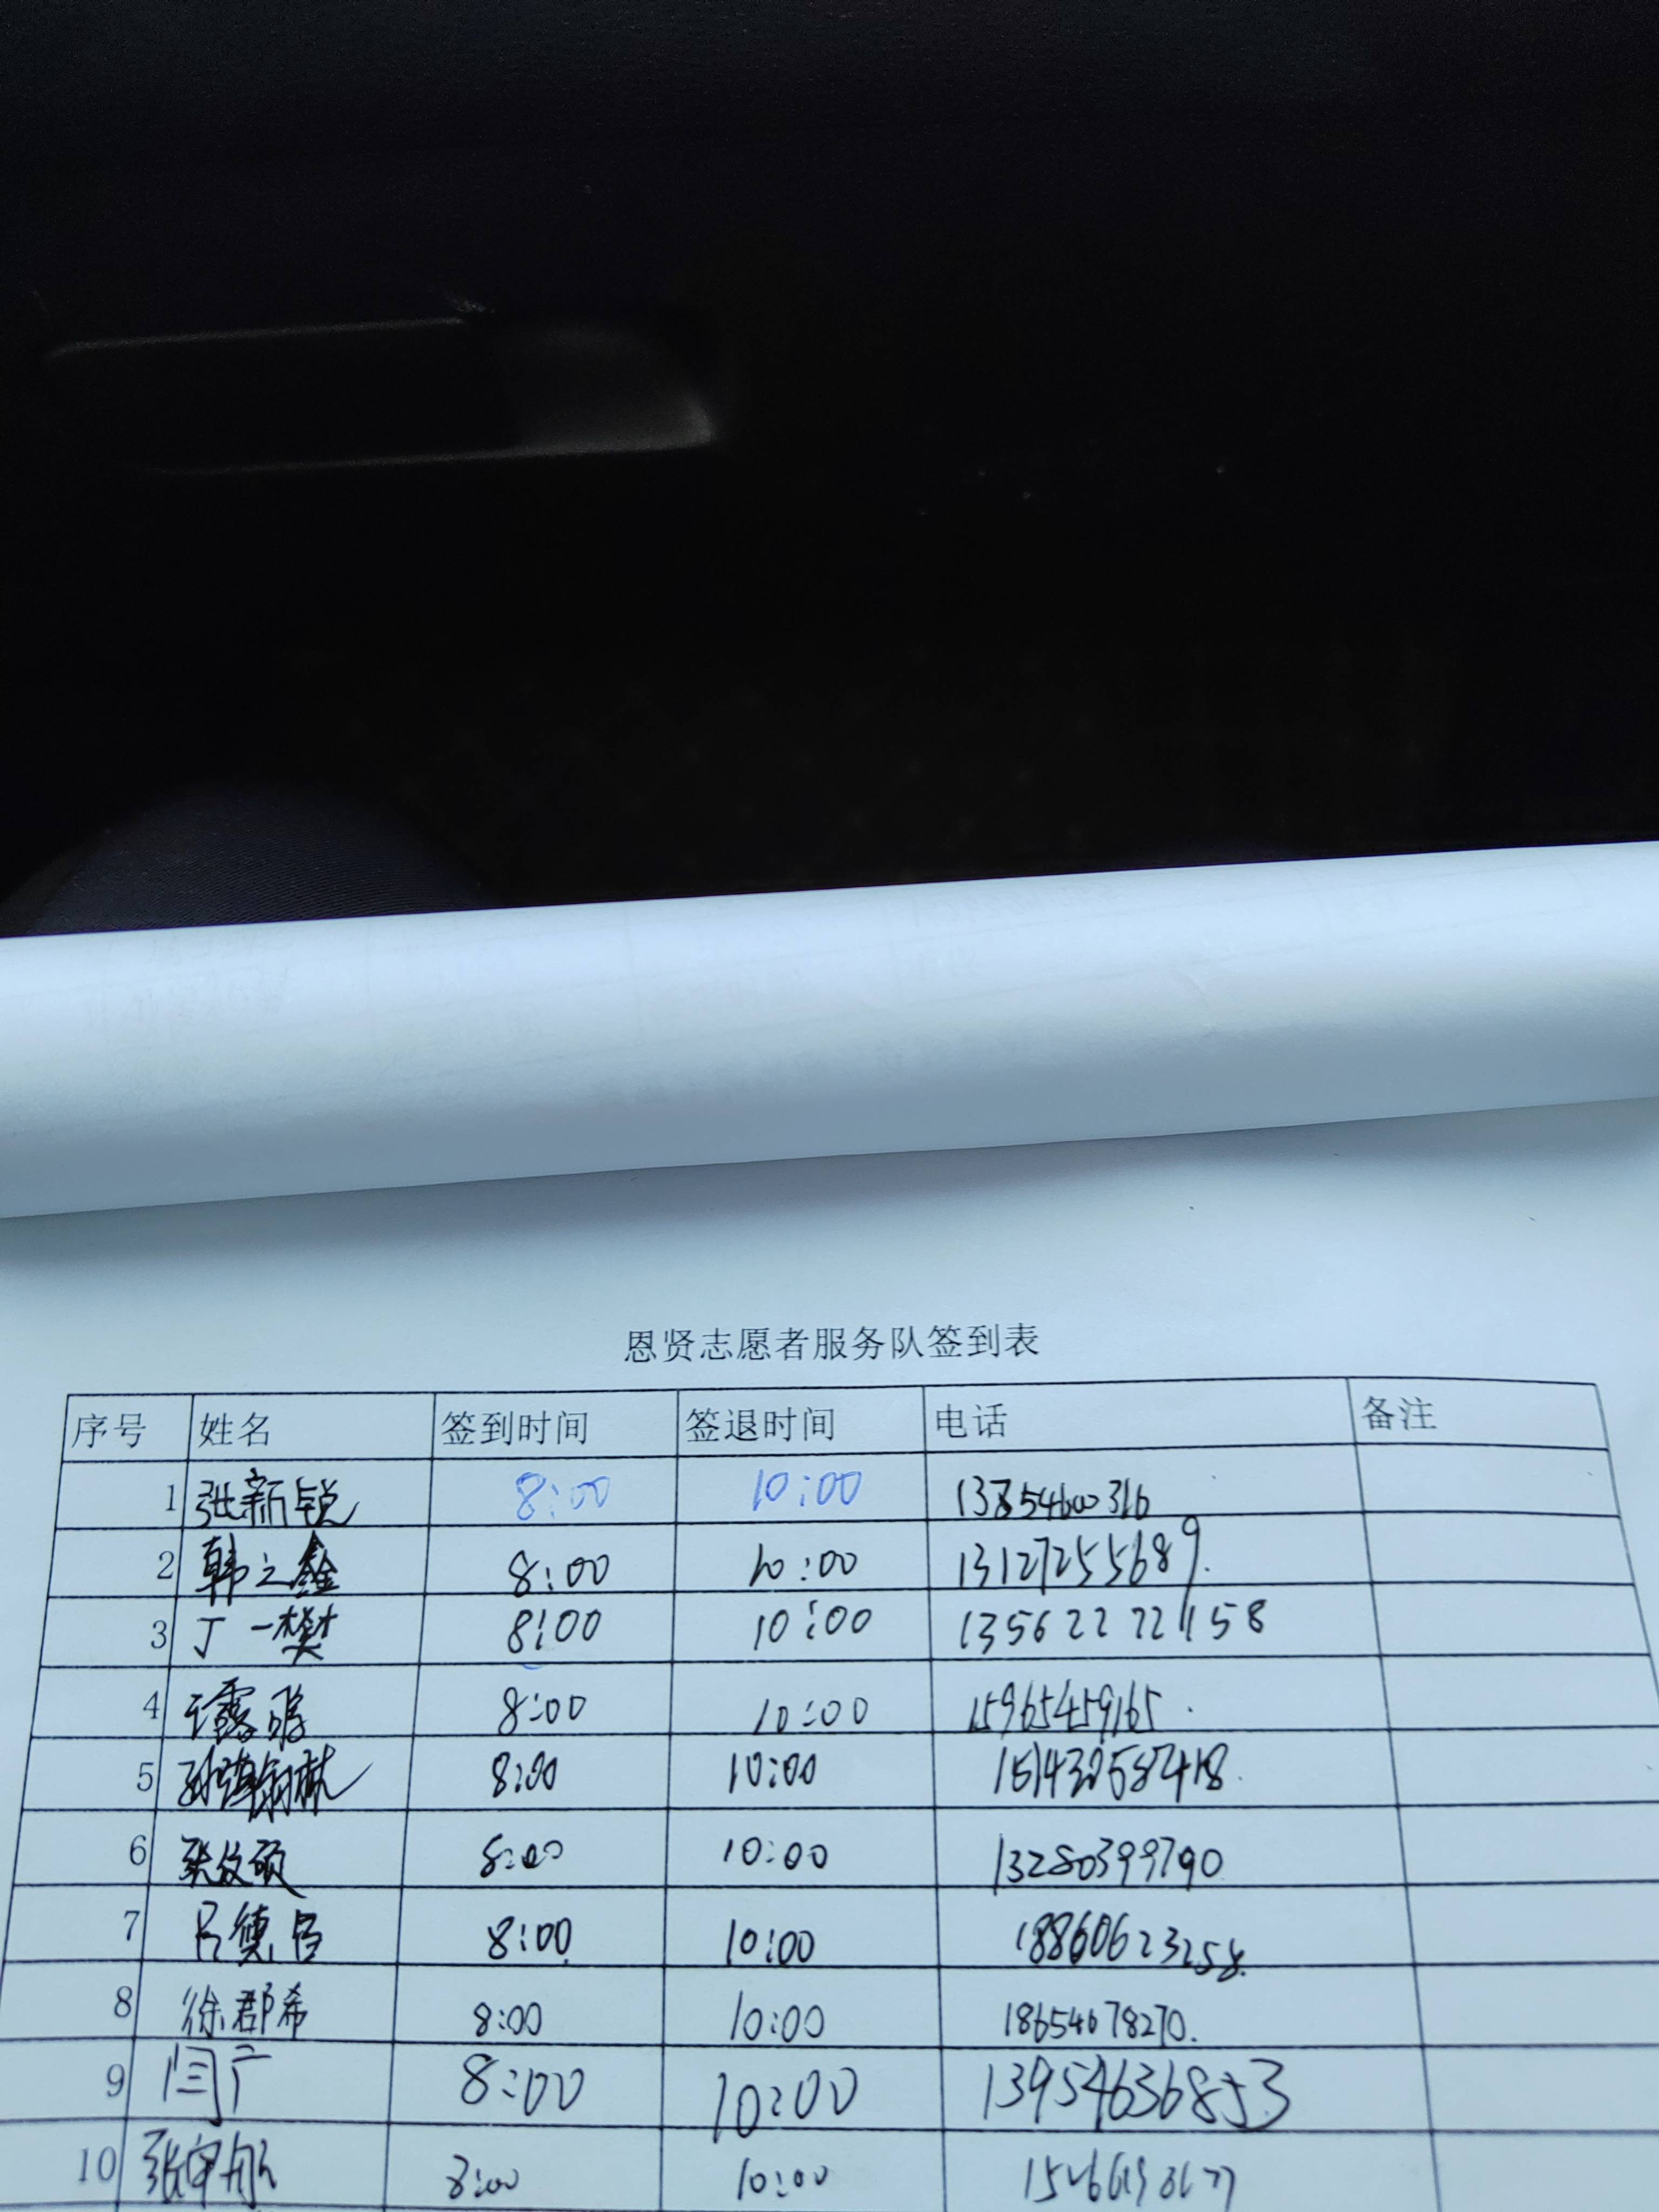 恩贤志愿者服务队签到表
序号 姓名 签到时间 签退时间 电话 备注
1 张新锐 8:00 10:00 13854600316
2 韩之鑫 8:00 10:00 13127255689.
3 丁一樊 8:00 10:00 13562272158
4 8:00 10:00 15965459165.
5 8:00 10:00
6 张文硕 8:00 10:00 13280399790
7 吕德昌 8:00 10:00 18860623258.
8 徐郡希 8:00 10:00 18654678270.
9 闫广 8:00 10:00 13954636853
10 8:00 10:00